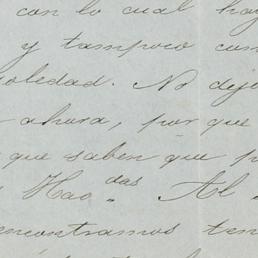 con lo cual hay
y tampoco com
soledad. No dej
ahora, por que
que saben que p
Hao das. Al
encontramos ten